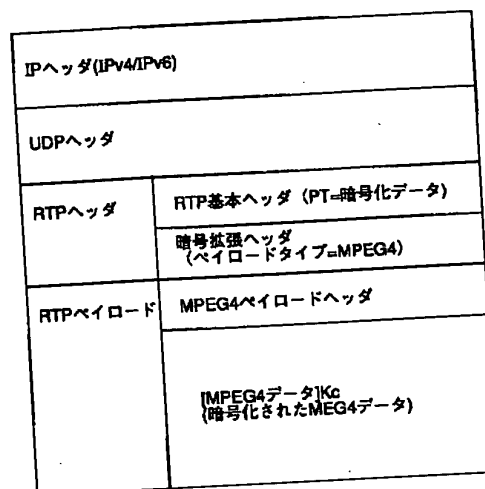 IPヘッダ(IPv4/IPv6)
UDPヘッダ
RTPヘッダ
RTP基本ヘッダ（PT=暗号化データ）
暗号拡張ヘッダ
（ペイロードタイプ=MPEG4）
RTPペイロード
MPEG4ペイロードヘッダ
[MPEG4データ]Kc
(暗号化されたMEG4データ)